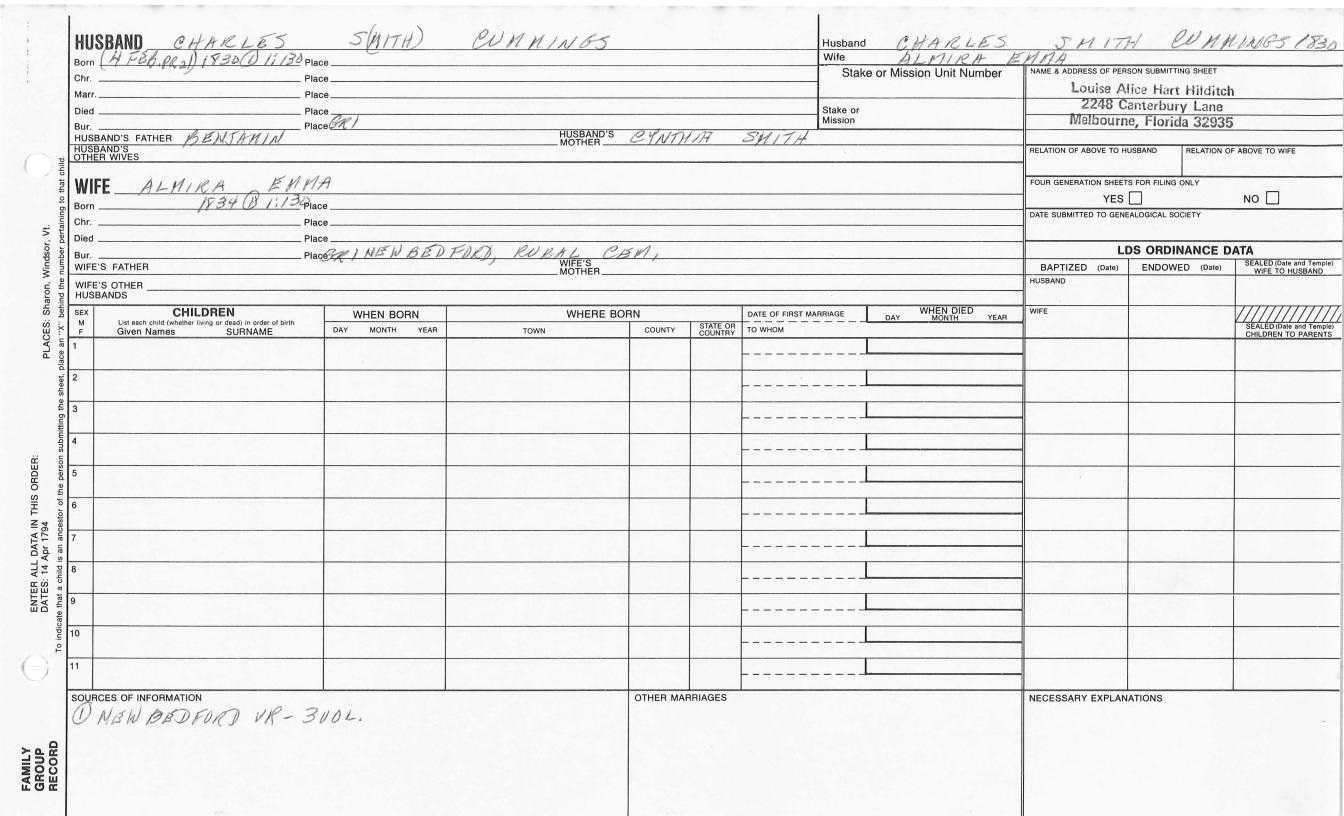 HUSBAND CHARLES S(MITH) CUMMINGS
Born (4 FEB. PR21) 1830 ① 1:130 Place
Chr. Place
Marr. Place
Died Place
Bur. Place GR1
HUSBAND'S FATHER BENJAMIN HUSBAND'S MOTHER CYNTHIA SMITH
HUSBAND'S OTHER WIVES
WIFE ALMIRA EMMA
Born 1834 ① 1:130 Place
Chr. Place
Died Place
Bur. Place GR1 NEW BEDFORD, RURAL CEM.
WIFE'S FATHER WIFE'S MOTHER
WIFE'S OTHER HUSBANDS
Husband CHARLES SMITH CUMMINGS 1830
Wife ALMIRA EMMA
Stake or Mission Unit Number
Stake or Mission
NAME & ADDRESS OF PERSON SUBMITTING SHEET
Louise Alice Hart Hilditch
2248 Canterbury Lane
Melbourne, Florida 32935
RELATION OF ABOVE TO HUSBAND RELATION OF ABOVE TO WIFE
FOUR GENERATION SHEETS FOR FILING ONLY
YES NO
DATE SUBMITTED TO GENEALOGICAL SOCIETY
LDS ORDINANCE DATA
BAPTIZED (Date) ENDOWED (Date) SEALED (Date and Temple) WIFE TO HUSBAND
HUSBAND
WIFE
SEALED (Date and Temple) CHILDREN TO PARENTS
SEX M F
CHILDREN
List each child (whether living or dead) in order of birth
Given Names SURNAME
WHEN BORN
DAY MONTH YEAR
WHERE BORN
TOWN COUNTY STATE OR COUNTRY
DATE OF FIRST MARRIAGE
TO WHOM
WHEN DIED
DAY MONTH YEAR
1
2
3
4
5
6
7
8
9
10
11
SOURCES OF INFORMATION
① NEW BEDFORD VR - 3 VOL.
OTHER MARRIAGES
NECESSARY EXPLANATIONS
ENTER ALL DATA IN THIS ORDER:
DATES: 14 Apr 1794 PLACES: Sharon, Windsor, Vt.
To indicate that a child is an ancestor of the person submitting the sheet, place an "X" behind the number pertaining to that child.
FAMILY GROUP RECORD